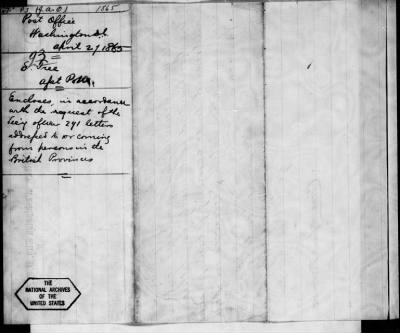 (A.G.O) 1865
Post Office
Washington D.C.
April 27 1865
S. Tree
Asst P.M.
Encloses, in accordance
with the request of the
Secy of War 291 letters
addressed to or coming
from persons in the
British Provinces
THE
NATIONAL ARCHIVES
OF THE
UNITED STATES